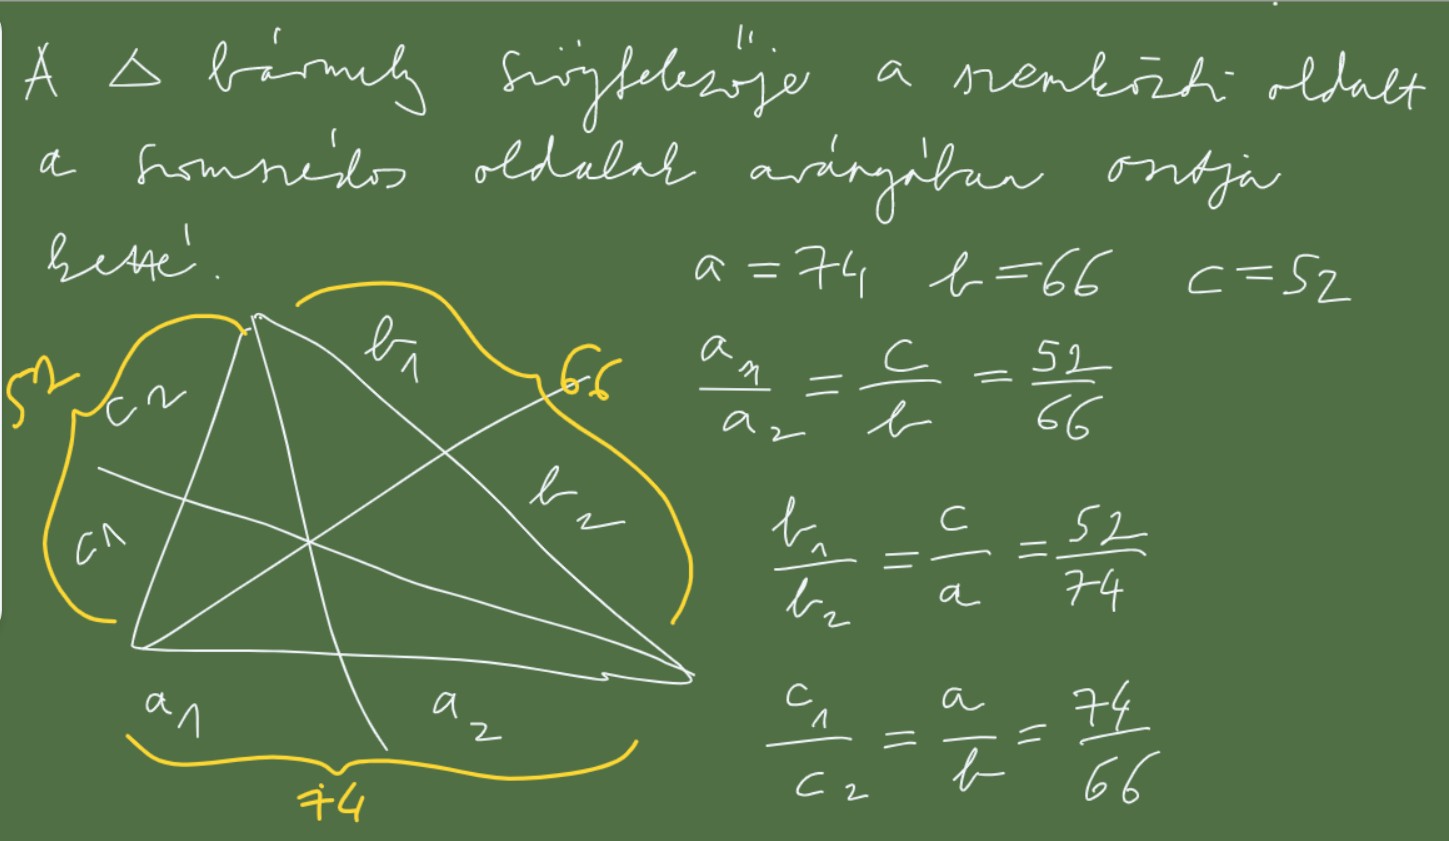 A △ bármely szögfelezője a szemközti oldalt
a szomszédos oldalak arányában osztja
ketté.
a = 74 b = 66 c = 52
a₁/a₂ = c/b = 52/66
b₁/b₂ = c/a = 52/74
c₁/c₂ = a/b = 74/66
52
c₂
c₁
b₁
66
b₂
a₁
a₂
74